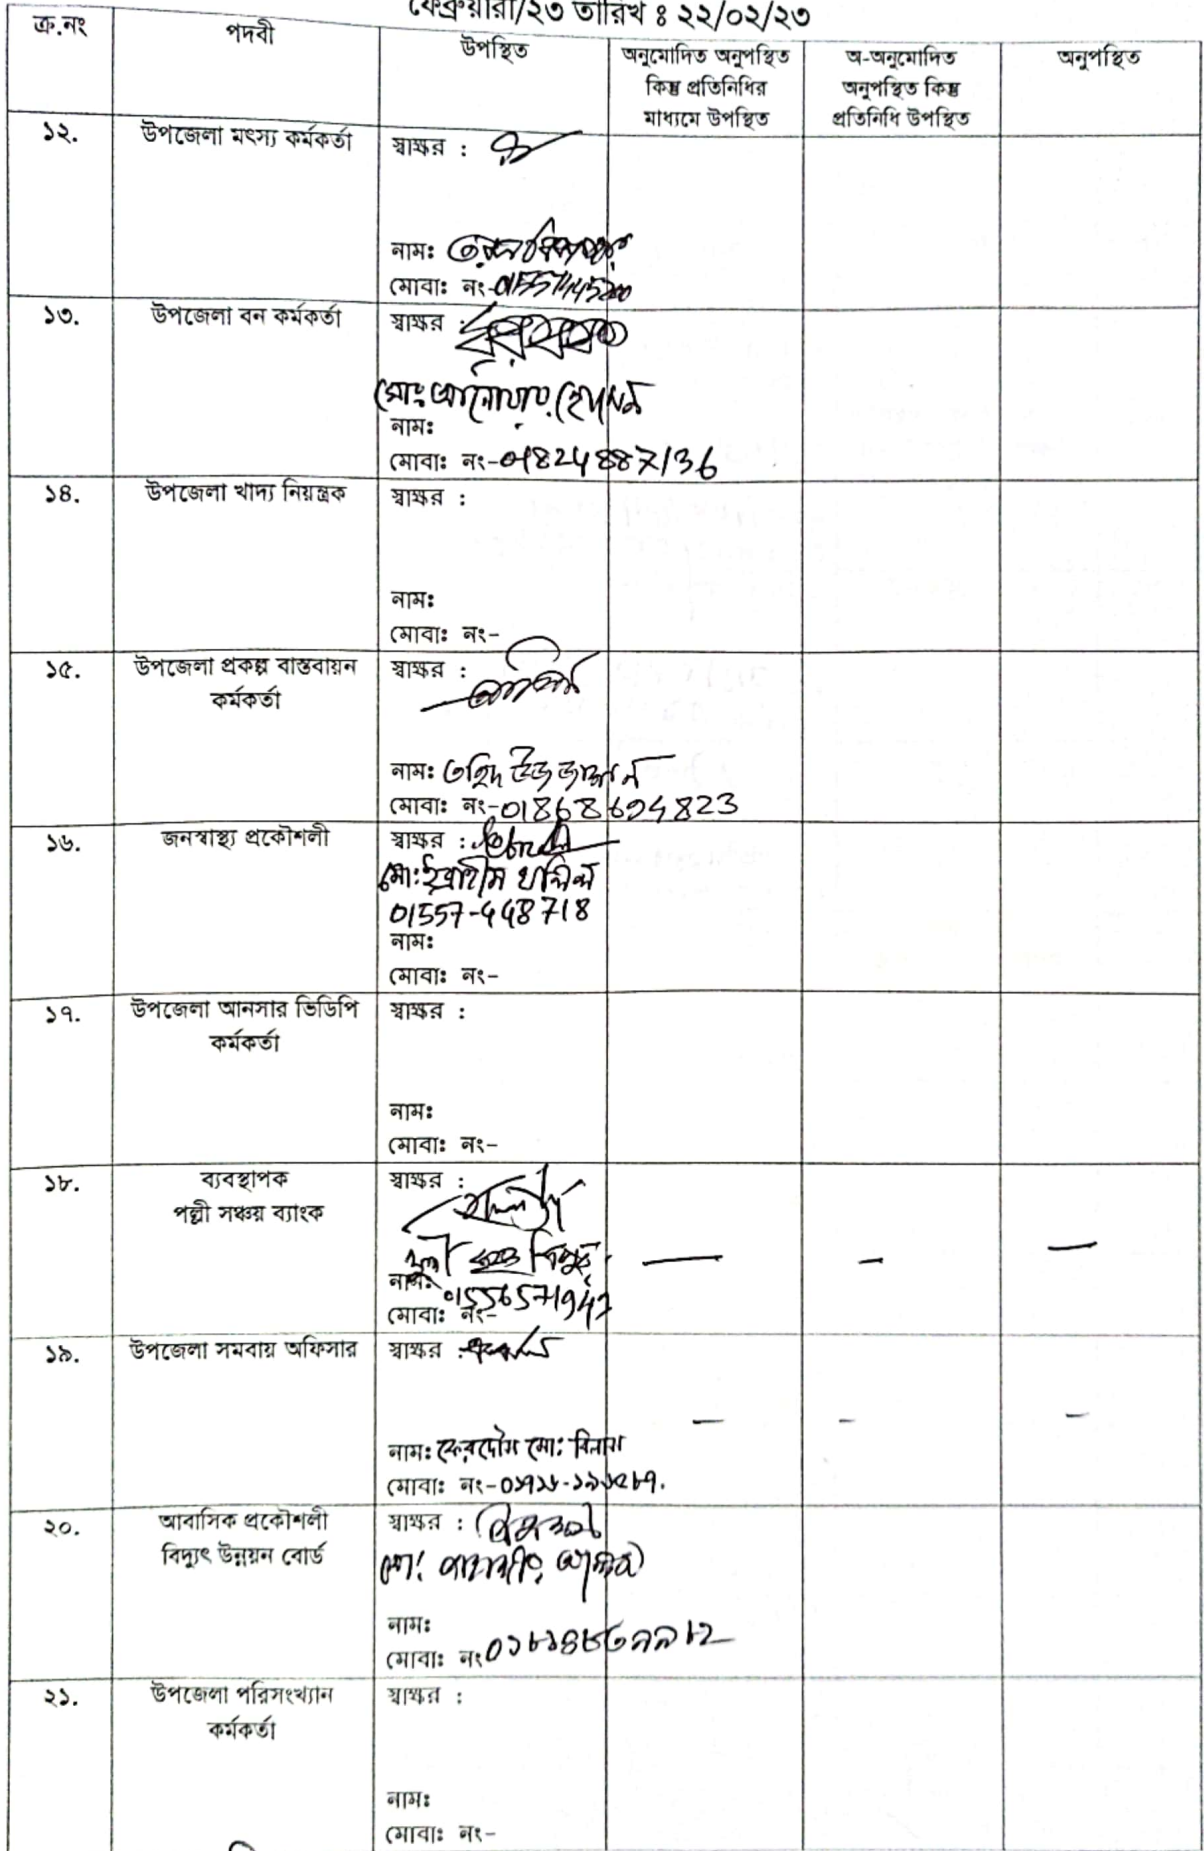 ফেব্রুয়ারী/২৩ তারিখ ঃ ২২/০২/২৩
ক্র.নং পদবী উপস্থিত অনুমোদিত অনুপস্থিত কিন্তু প্রতিনিধির মাধ্যমে উপস্থিত অ-অনুমোদিত অনুপস্থিত কিন্তু প্রতিনিধি উপস্থিত অনুপস্থিত
১২. উপজেলা মৎস্য কর্মকর্তা স্বাক্ষর :
নাম:
মোবা: নং-
১৩. উপজেলা বন কর্মকর্তা স্বাক্ষর :
মোঃ আনোয়ার হোসেন
নাম:
মোবা: নং-01824887136
১৪. উপজেলা খাদ্য নিয়ন্ত্রক স্বাক্ষর :
নাম:
মোবা: নং-
১৫. উপজেলা প্রকল্প বাস্তবায়ন কর্মকর্তা স্বাক্ষর :
নাম: তহিদ উজ জামান
মোবা: নং-01868694823
১৬. জনস্বাস্থ্য প্রকৌশলী স্বাক্ষর :
মো: ইব্রাহীম খলিল
01557-448718
নাম:
মোবা: নং-
১৭. উপজেলা আনসার ভিডিপি কর্মকর্তা স্বাক্ষর :
নাম:
মোবা: নং-
১৮. ব্যবস্থাপক পল্লী সঞ্চয় ব্যাংক স্বাক্ষর :
ত্রিপুরা
নাম:
01556571947
মোবা: নং-
১৯. উপজেলা সমবায় অফিসার স্বাক্ষর :
নাম: ফেরদৌস মো:
মোবা: নং-
২০. আবাসিক প্রকৌশলী বিদ্যুৎ উন্নয়ন বোর্ড স্বাক্ষর :
মো:
নাম:
মোবা: নং
২১. উপজেলা পরিসংখ্যান কর্মকর্তা স্বাক্ষর :
নাম:
মোবা: নং-